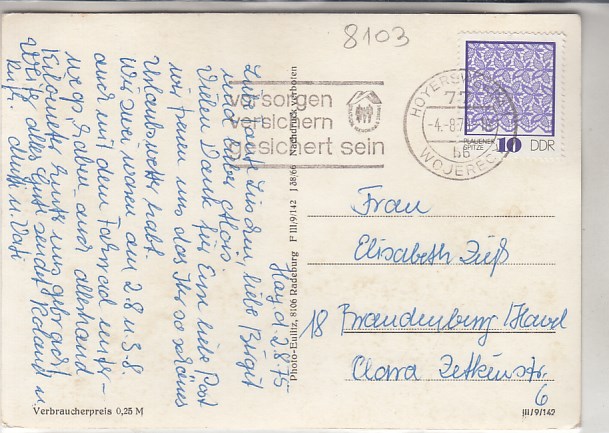 8103
vorsorgen
versichern
gesichert sein
HOYERSWERDA
77
-4.-8.75-16
bb
WOJERECY
PLAUENER
SPITZE
10 DDR
Hoy, d. 2.8.75
Liebe Tante Lieschen, liebe Birgit
und lieber Alois.
Vielen Dank für Eure liebe Post
wir freuen uns das Ihr so schönes
Urlaubswetter habt.
Wir zwei waren am 2.8 u 3.8.
auch mit dem Fahrrad unter-
wegs, haben auch allerhand
Kilometer hinter uns gebracht
Weiter alles Gute senden Roland u.
Mutti u. Vati
Frau
Elisabeth
18 Brandenburg/Havel
Clara Zetkinstr.
6
Photo-Eulitz, 8106 Radeburg F III/9/142 J 38/66 Nachdruck verboten
Verbraucherpreis 0,25 M
III/9/142